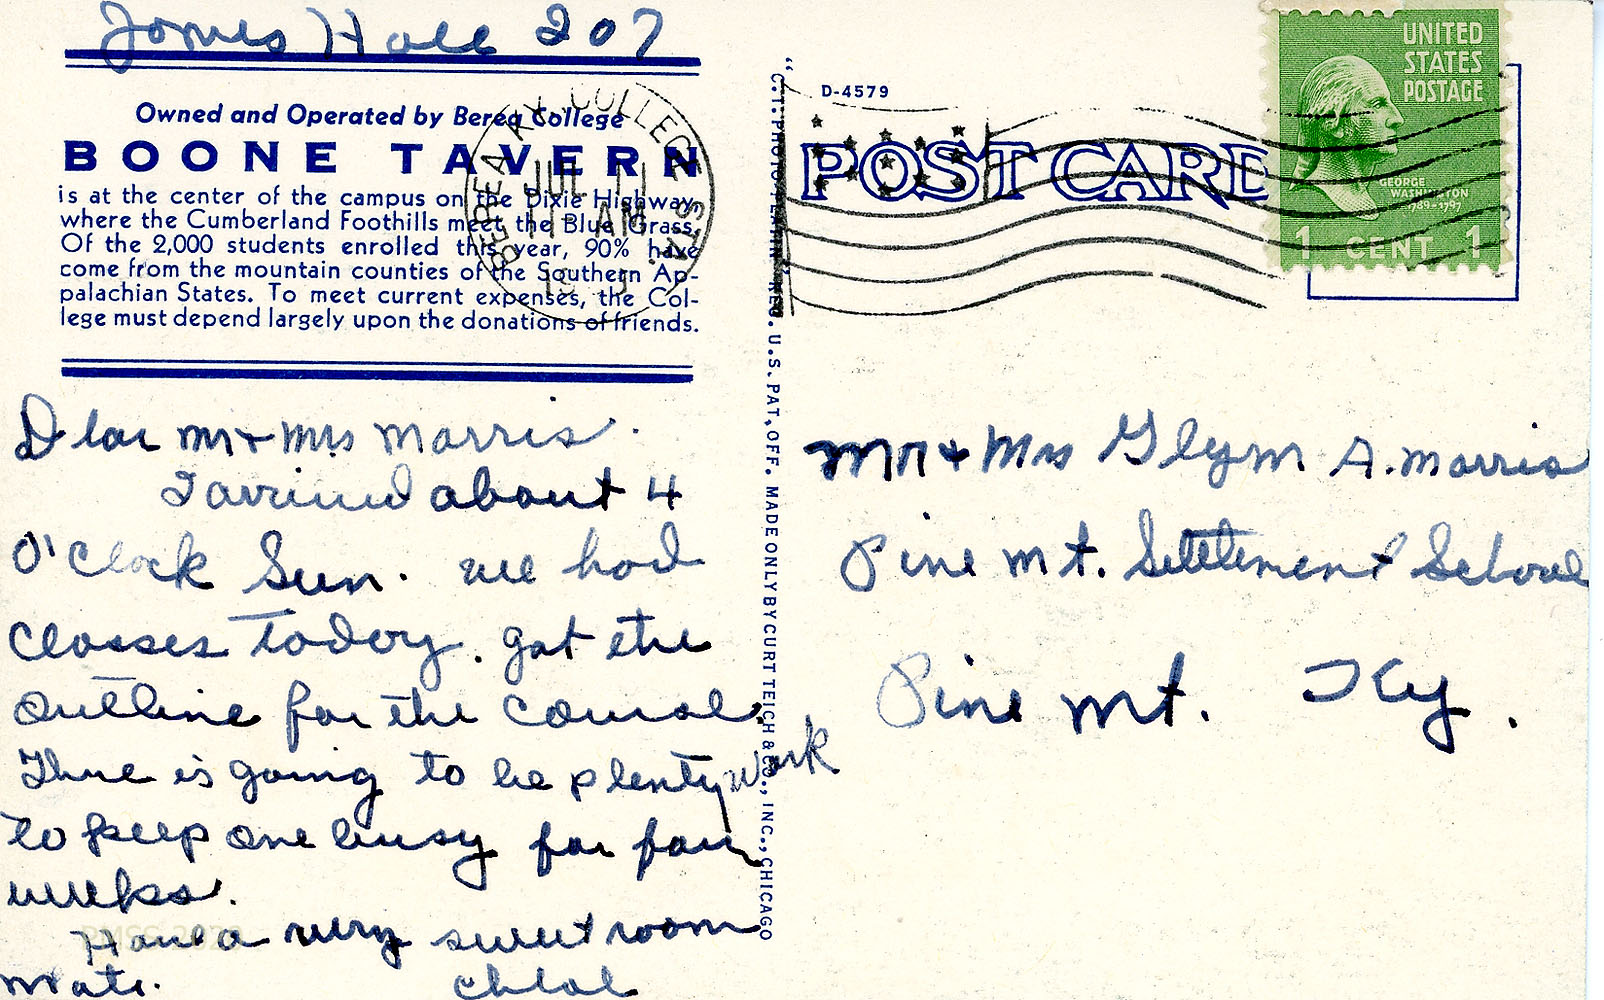 James Hall 207
Owned and Operated by Berea College
BOONE TAVERN
is at the center of the campus on the Dixie Highway,
where the Cumberland Foothills meet the Blue Grass.
Of the 2,000 students enrolled this year, 90% have
come from the mountain counties of the Southern Ap-
palachian States. To meet current expenses, the Col-
lege must depend largely upon the donations of friends.
Dear Mr & Mrs Morris.
I arrived about 4
O'Clock Sun. we had
classes today. got the
outline for the course.
There is going to be plenty work
to keep one busy for four
weeks.
Have a very sweet room
mate.
Chloe
"C.T. PHOTO-PLATIN" REG. U.S. PAT. OFF. MADE ONLY BY CURT TEICH & CO., INC., CHICAGO
D-4579
POST CARD
BEREA KY COLLEGE STA.
JUL 11
11 AM
UNITED
STATES
POSTAGE
GEORGE
WASHINGTON
1789-1797
1 CENT 1
Mr & Mrs Glynn A. Morris
Pine Mt. Settlement School
Pine Mt. Ky.